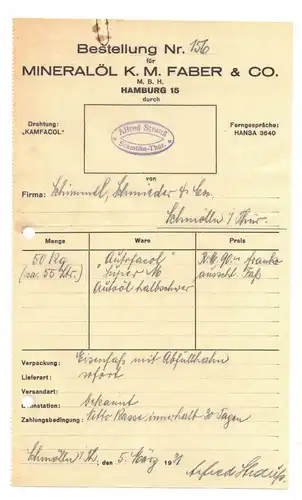 Bestellung Nr. 156
für
MINERALÖL K. M. FABER & CO.
M. B. H.
HAMBURG 15
durch
Drahtung:
„KAMFACOL"
Ferngespräche:
HANSA 3640
Alfred Strauß
von
Firma: Schimmel, Schmieder & Co.
Schmölln i/Thür.
Menge Ware Preis
50 Kg „Autofacol" R.M. 90.– franko
(ca. 55 Ltr.) Super M ausschl. Faß
Autoöl halbschwer
Verpackung: Eisenfaß mit Abfüllhahn
Lieferart: sofort
Versandart:
bekannt
Zahlungsbedingung: netto Kasse innerhalb 30 Tagen
Schmölln i/Th. 5. März 19
Alfred Strauß